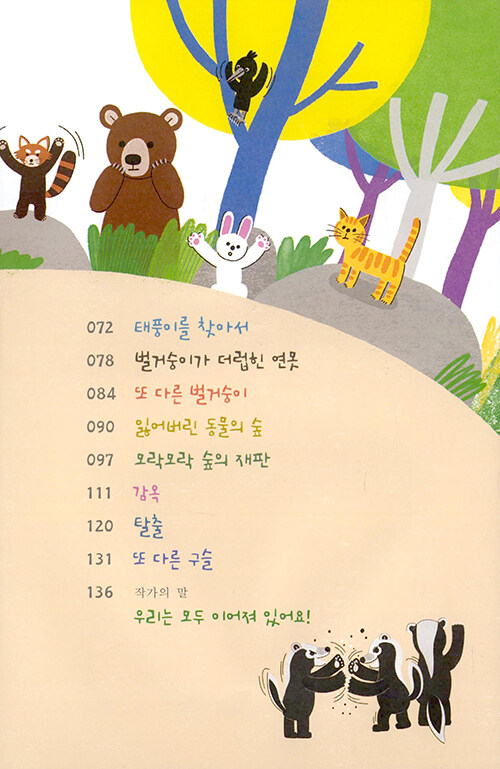 072 태풍이를 찾아서
078 벌거숭이가 더럽힌 연못
084 또 다른 벌거숭이
090 잃어버린 동물의 숲
097 모락모락 숲의 재판
111 감옥
120 탈출
131 또 다른 구슬
136 작가의 말
우리는 모두 이어져 있어요!